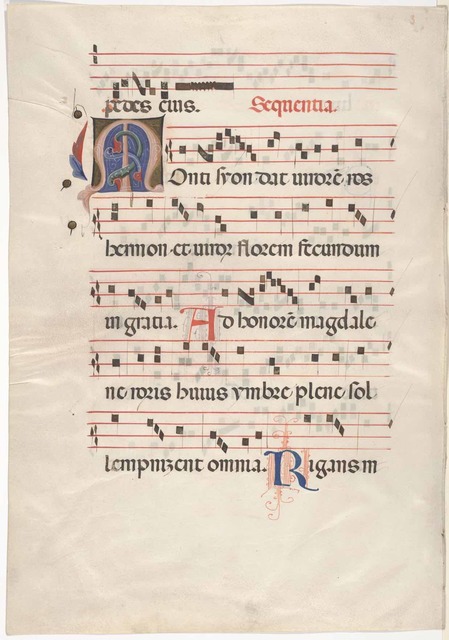 pedes eius. Sequentia.
Monti syon dat virorē ros
hermon et viror florem fecundum
in gratia. Ad honorē magdale
ne roris huius ymbre plene sol
lempnizent omnia. Rigans in